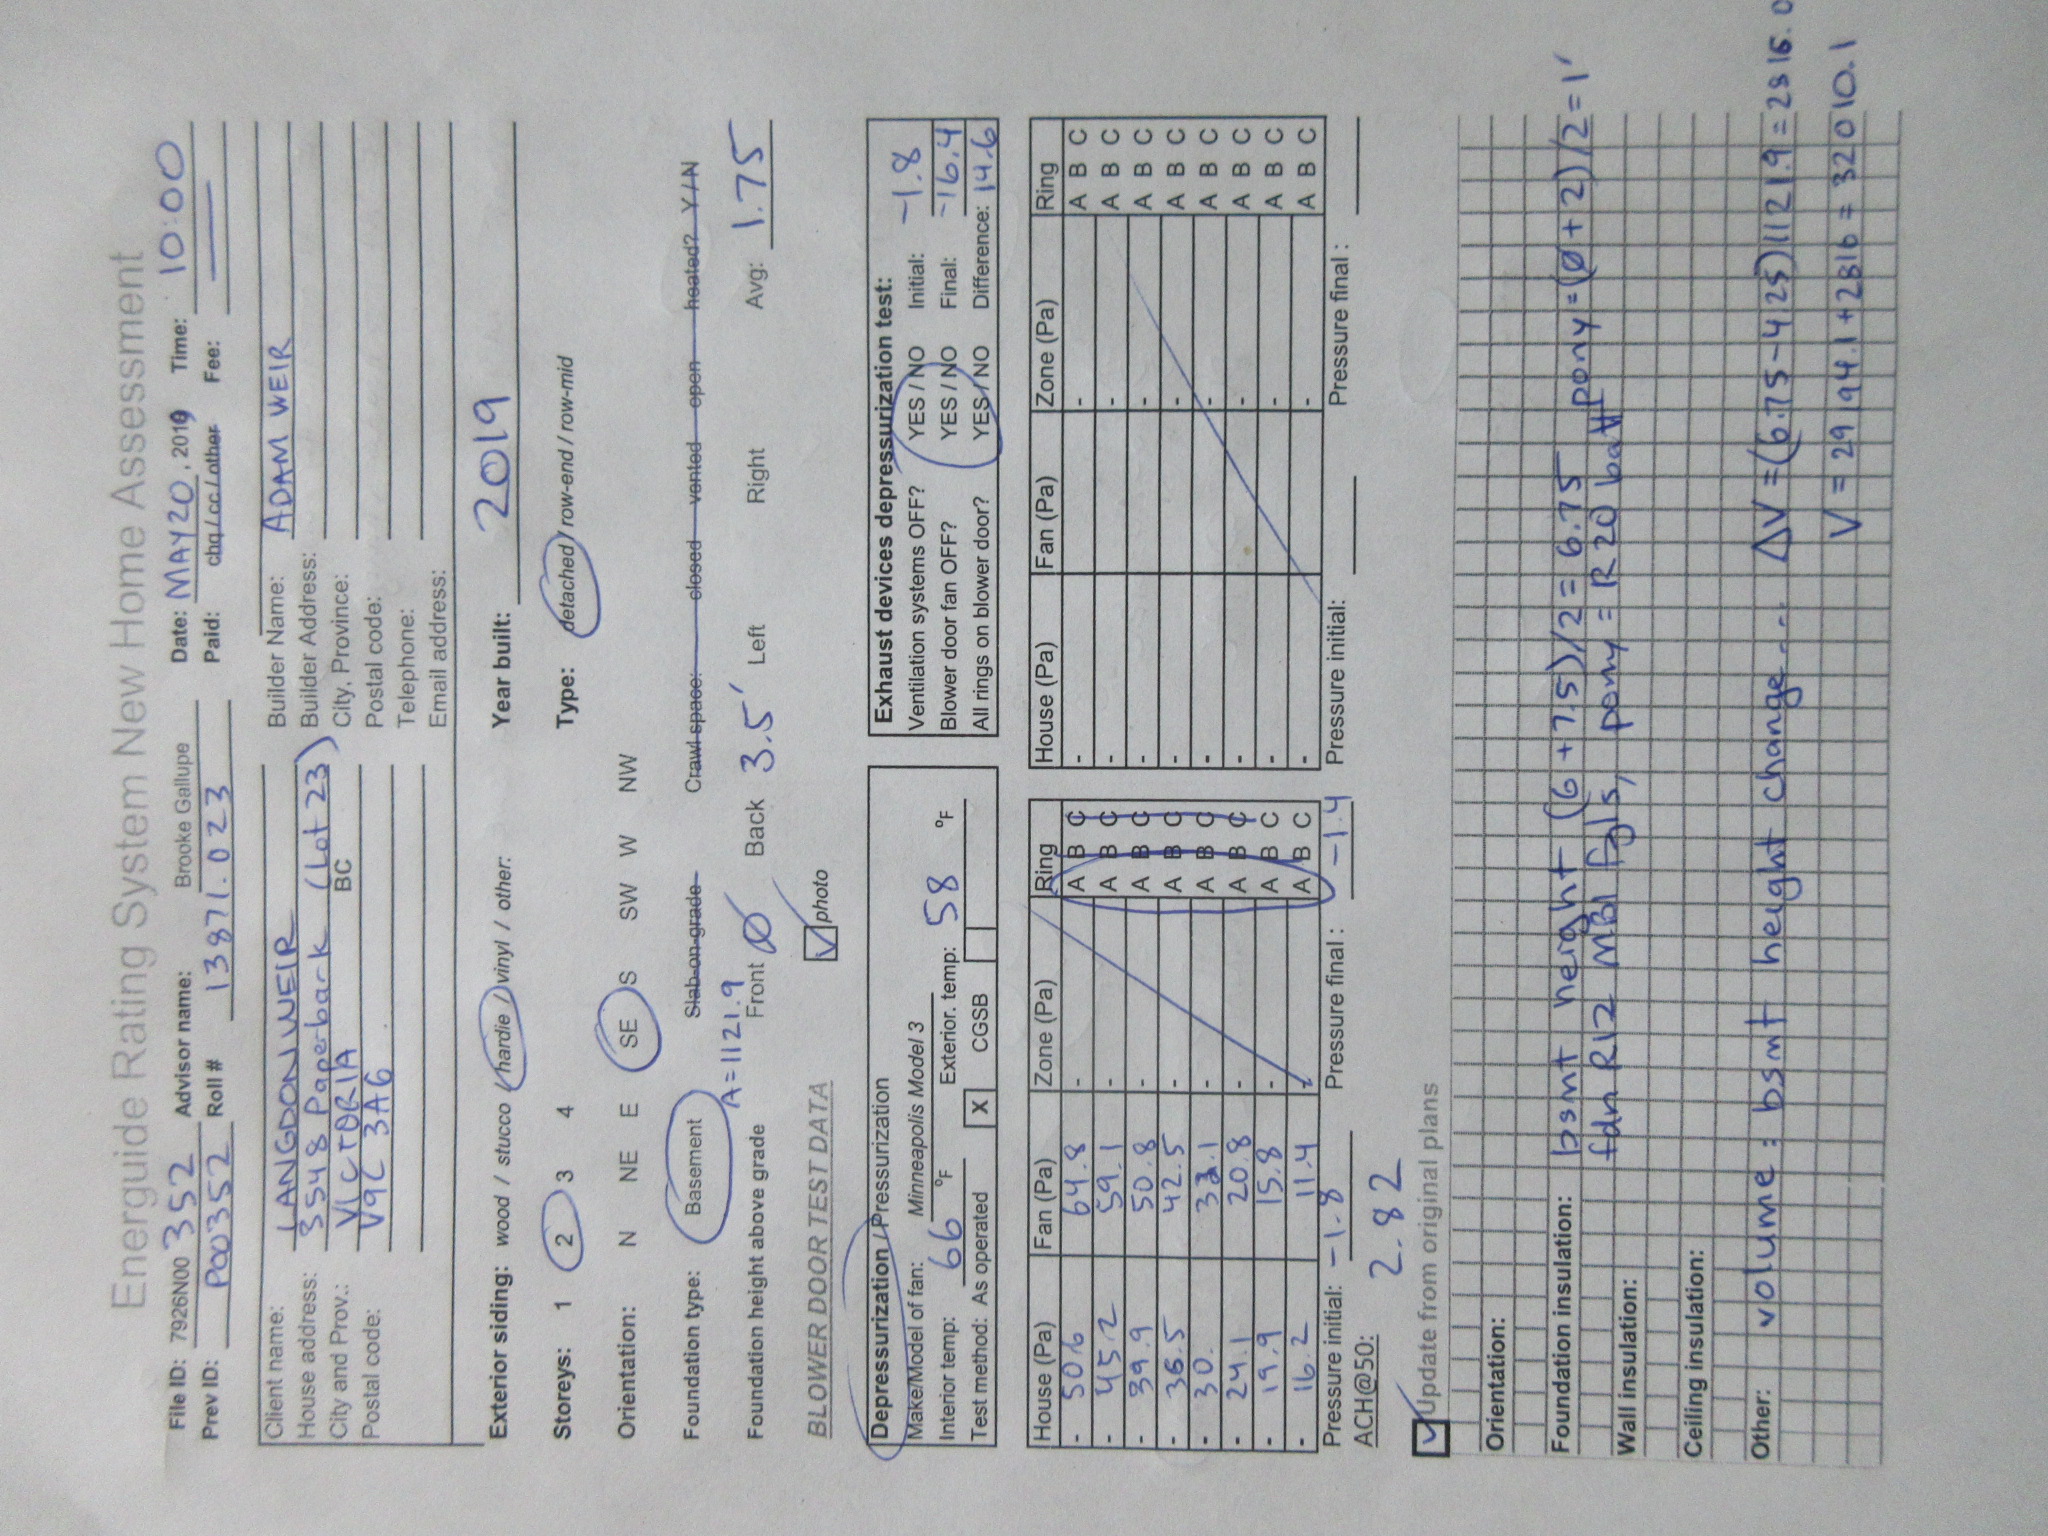 Energuide Rating System New Home Assessment
File ID: 7926N00 352 Advisor name: Brooke Gallupe Date: MAY 20, 2019 Time: 10:00
Prev ID: P00352 Roll # 13871.023 Paid: chq / cc / other Fee: —
Client name: LANGDON WEIR Builder Name: ADAM WEIR
House address: 3548 Paperback (Lot 23) Builder Address:
City and Prov.: VICTORIA BC City, Province:
Postal code: V9C 3A6 Postal code:
Telephone:
Email address:
Exterior siding: wood / stucco / hardie / vinyl / other: Year built: 2019
Storeys: 1 2 3 4 Type: detached / row-end / row-mid
Orientation: N NE E SE S SW W NW
Foundation type: Basement Slab-on-grade Crawl space: closed vented open heated? Y / N
A = 1121.9
Foundation height above grade Front Ø Back 3.5' Left Right Avg: 1.75
BLOWER DOOR TEST DATA photo
Depressurization / Pressurization
Make/Model of fan: Minneapolis Model 3
Interior temp: 66 °F Exterior. temp: 58 °F
Test method: As operated X CGSB
Exhaust devices depressurization test:
Ventilation systems OFF? YES / NO Initial: -1.8
Blower door fan OFF? YES / NO Final: -16.4
All rings on blower door? YES / NO Difference: 14.6
House (Pa) Fan (Pa) Zone (Pa) Ring
- 50.6 64.8 - A B C
- 45.2 59.1 - A B C
- 39.9 50.8 - A B C
- 42.5 - A B C
- 30. - A B C
- 24.1 20.8 - A B C
- 19.9 15.8 - A B C
- 16.2 11.4 - A B C
Pressure initial: -1.8 Pressure final : -1.4
ACH@50: 2.82
House (Pa) Fan (Pa) Zone (Pa) Ring
- - A B C
- - A B C
- - A B C
- - A B C
- - A B C
- - A B C
- - A B C
- - A B C
Pressure initial: Pressure final :
Update from original plans
Orientation:
Foundation insulation: bsmnt height (6 + 7.5)/2 = 6.75 pony = (Ø + 2)/2 = 1'
fdn R12 MBI fgls, pony = R20 batt
Wall insulation:
Ceiling insulation:
Other: volume: bsmnt height change... ΔV = (6.75-4.25)1121.9 = 2816.0
V = 29194.1 + 2816 = 32010.1